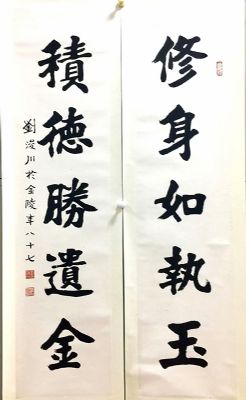 修身如執玉
積德勝遺金
劉浚川於金陵年八十七